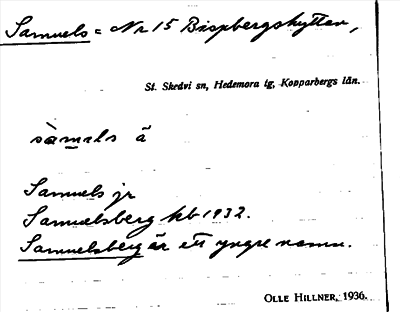 Samuels = Nr 15 Bispbergshyttan,
St. Skedvi sn, Hedemora tg, Kopparbergs län.
sàmals ä
Samuels jr
Samuelsberg kb 1932.
Samuelsberg är ett yngre namn.
OLLE HILLNER, 1936.